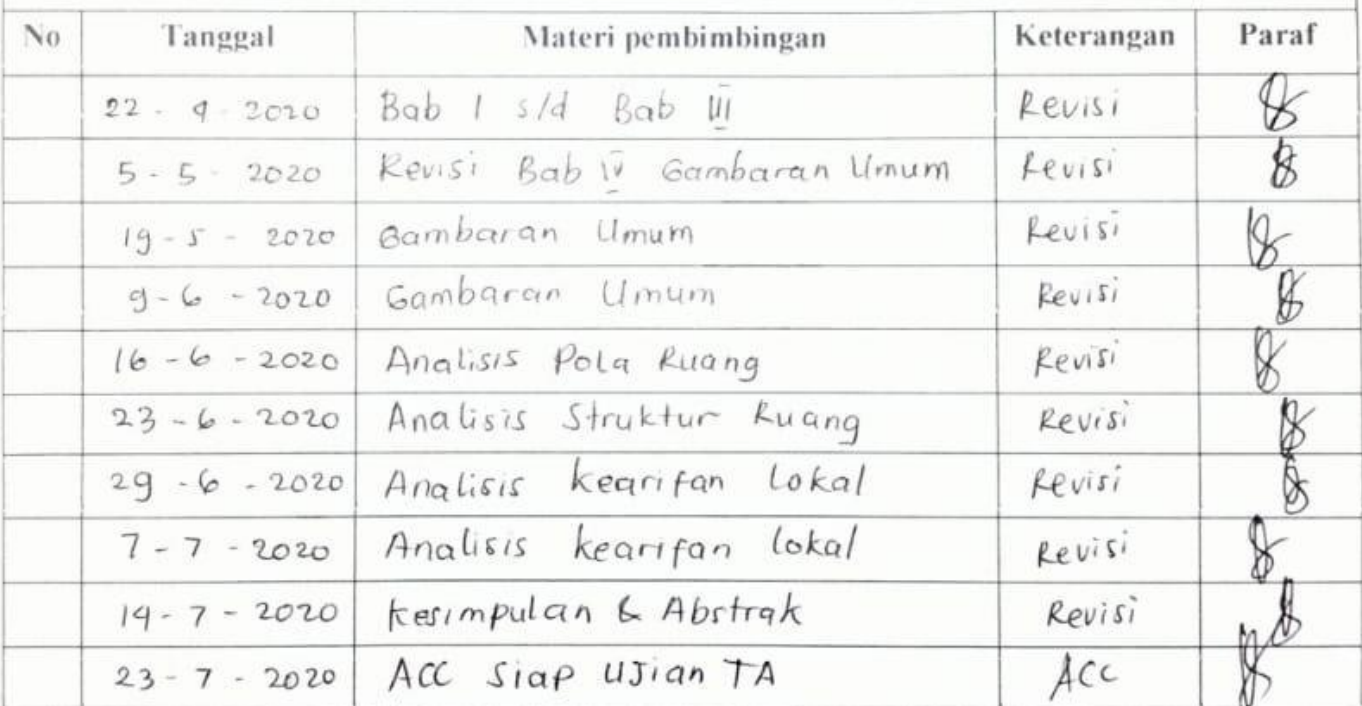 No Tanggal Materi pembimbingan Keterangan Paraf
22 - 4 - 2020 Bab I s/d Bab III Revisi
5 - 5 - 2020 Revisi Bab IV Gambaran Umum Revisi
19 - 5 - 2020 Gambaran Umum Revisi
9 - 6 - 2020 Gambaran Umum Revisi
16 - 6 - 2020 Analisis Pola Ruang Revisi
23 - 6 - 2020 Analisis Struktur Ruang Revisi
29 - 6 - 2020 Analisis kearifan Lokal Revisi
7 - 7 - 2020 Analisis kearifan lokal Revisi
14 - 7 - 2020 Kesimpulan & Abstrak Revisi
23 - 7 - 2020 ACC Siap Ujian TA ACC